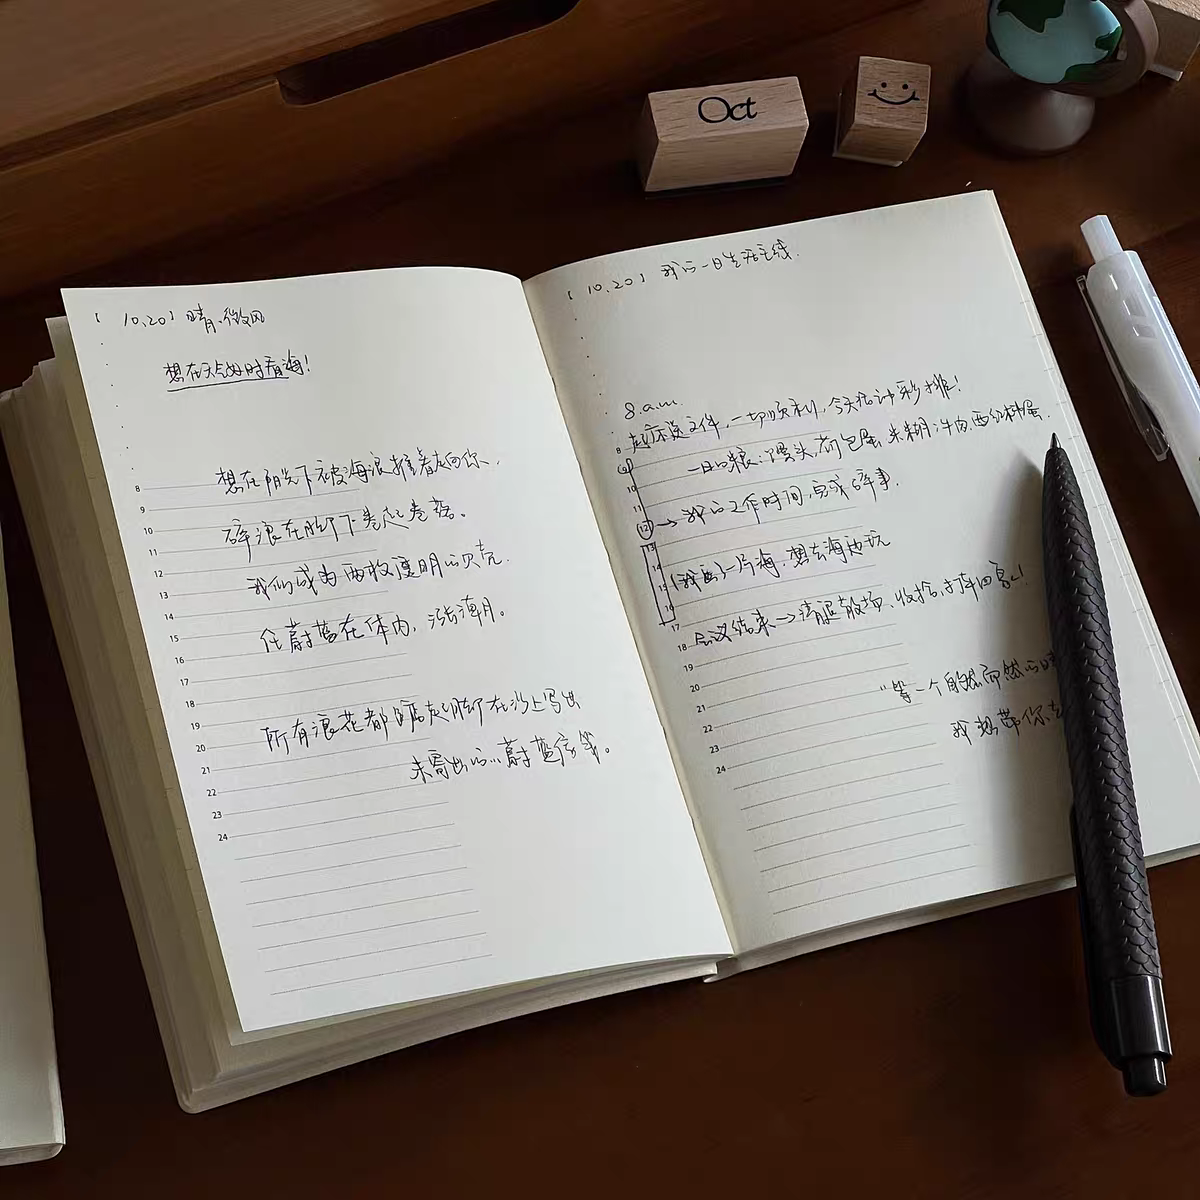 Oct
[10.20] 晴、微风
想在天气好时看海!
想在阳光下被海浪推着走向你、
碎浪在脚下卷起卷落。
我们成为两枚透明的贝壳.
任蔚蓝在体内，涨满月。
所有浪花都踮起脚在沙上写出
未寄出的…蔚蓝信笺。
8
9
10
11
12
13
14
15
16
17
18
19
20
21
22
23
24
[10.20] 我的一日生活主线.
8.a.m.
起床送文件，一切顺利，今天估计彩排!
一日口粮：馒头，荷包蛋，米糊，牛肉，西红柿蛋.
→我的工作时间，完成碎事.
(我画)一片海，想去海边玩
会议结束→清退散场、收拾，打车回家~!
"等一个自然而然的晴
我想带你去
8
9
10
12
13
14
15
16
17
18
19
20
21
22
23
24